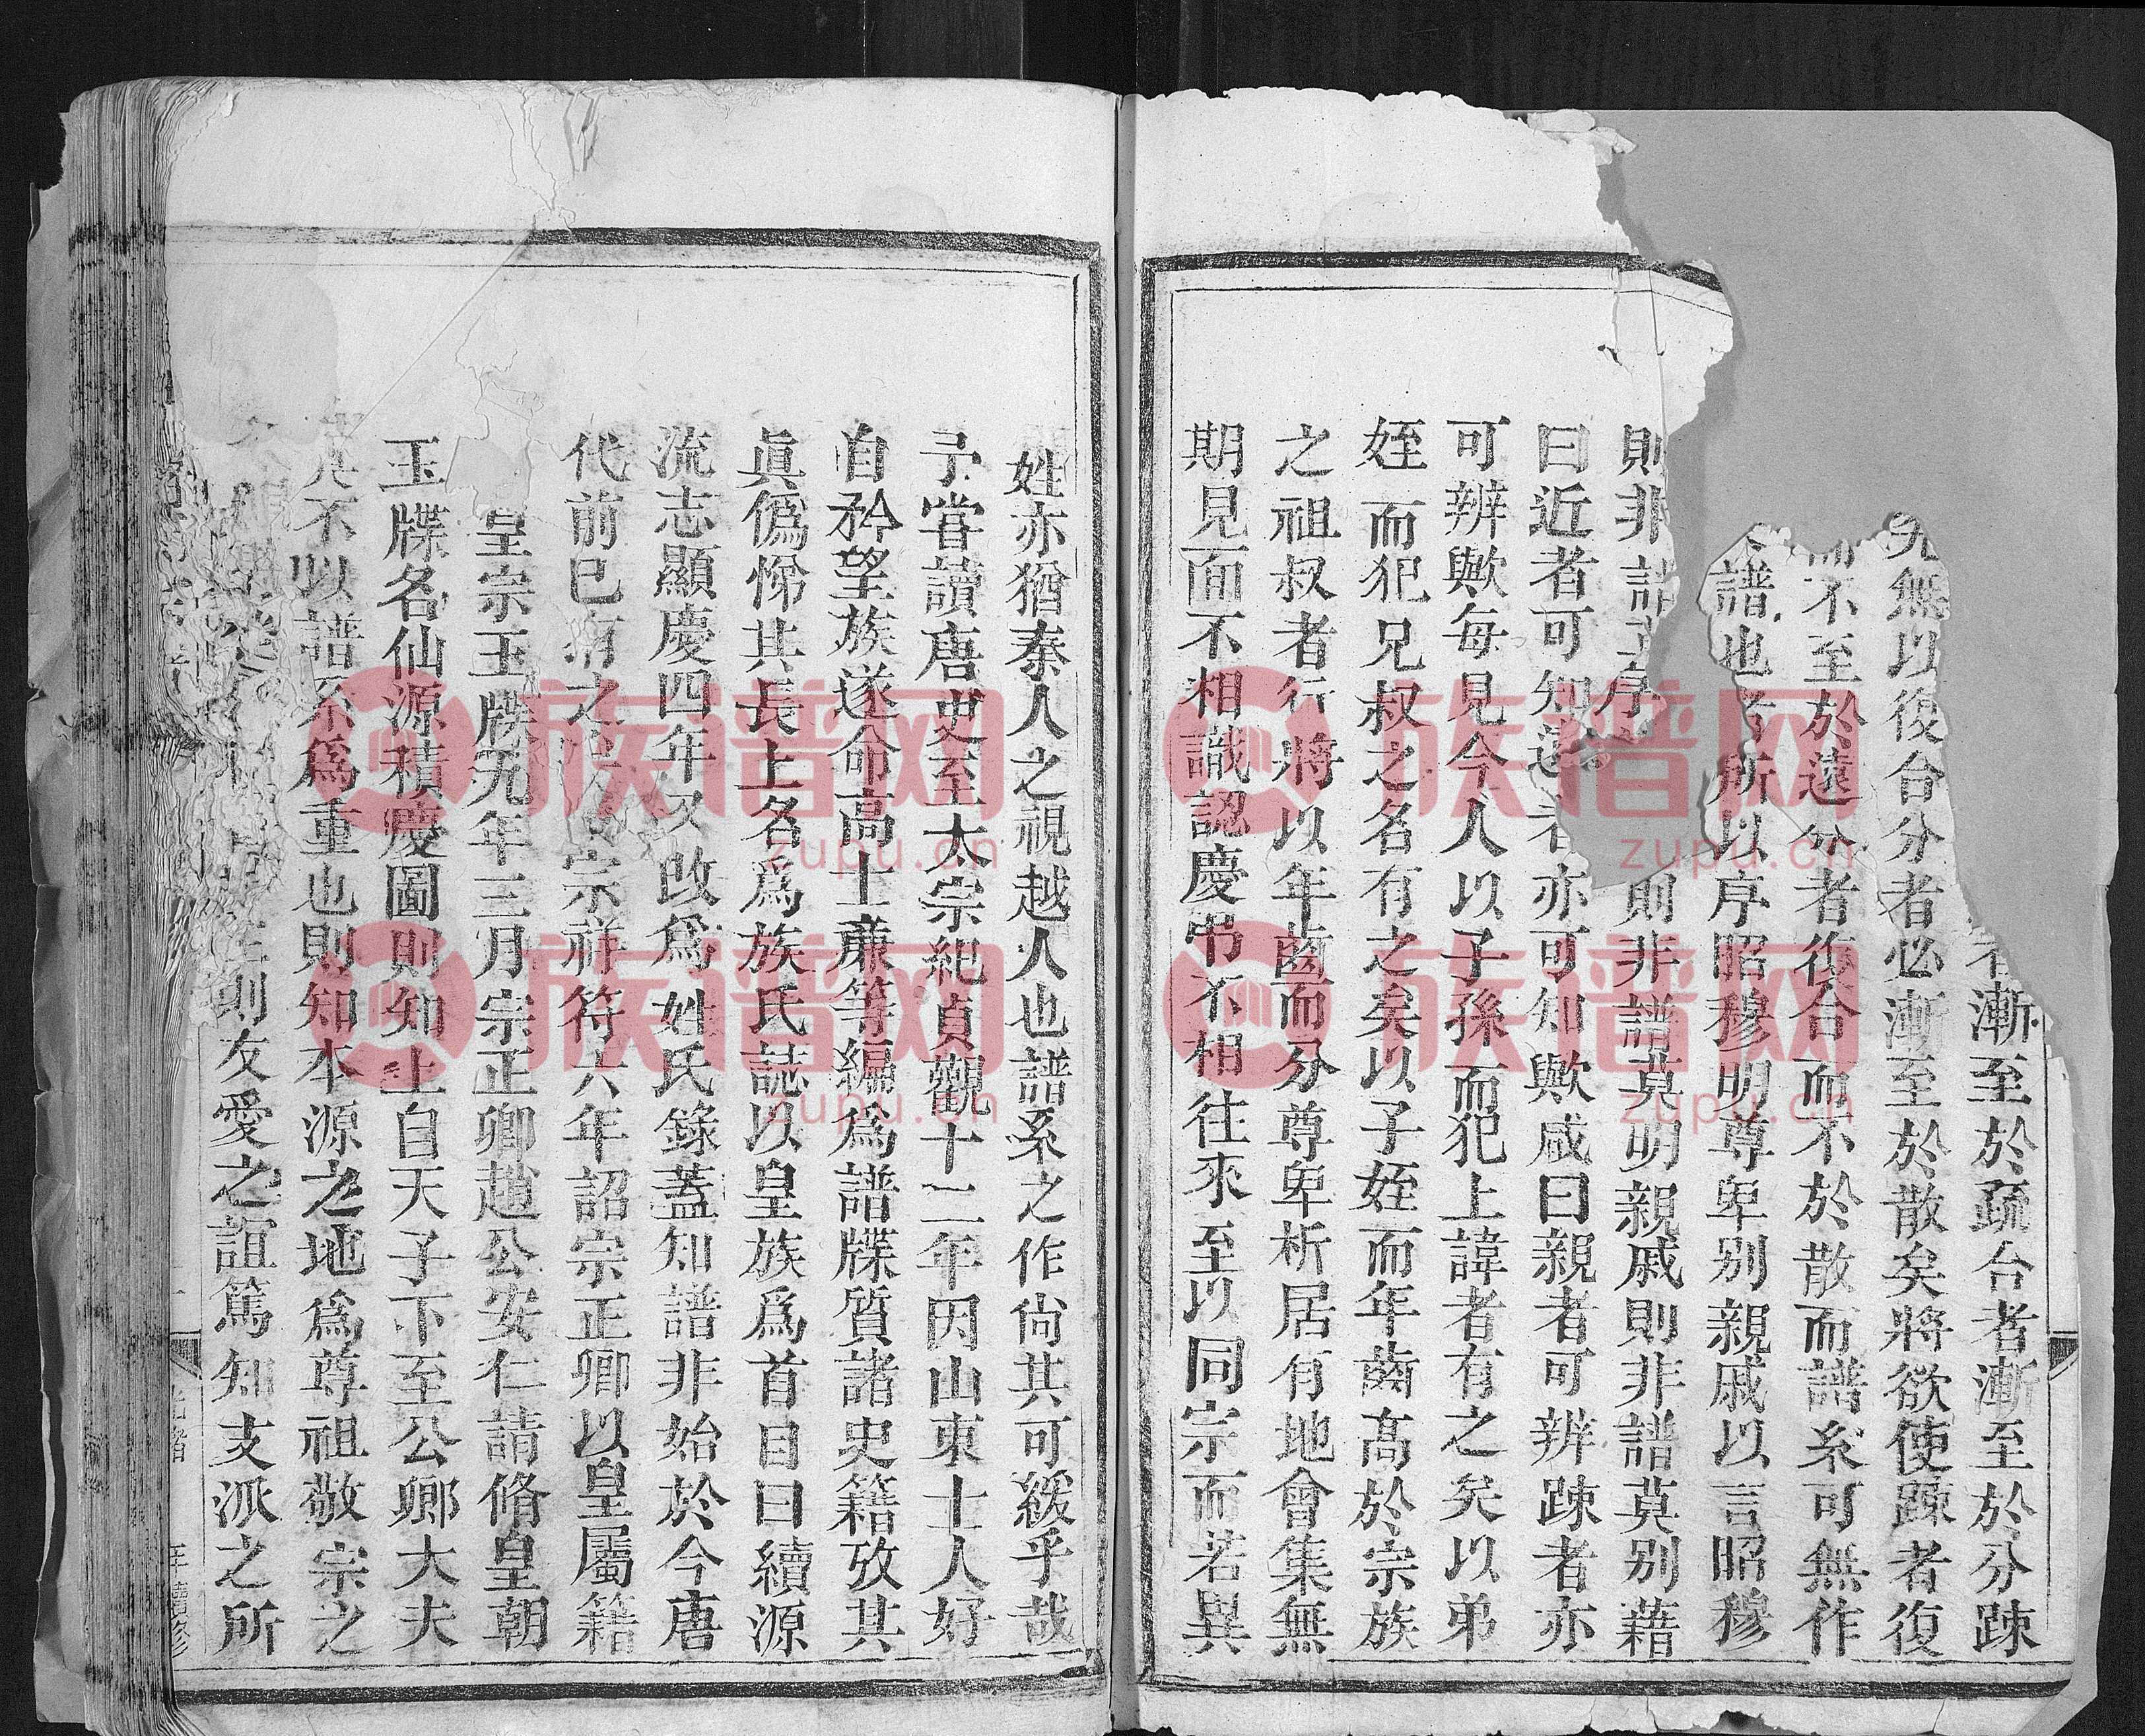 漸至於疏合者漸至於分疎
無以復合分者必漸至於散矣將欲使踈者復
不至於遠分者復合而不於散而譜系可無作
譜也 所以序昭穆明尊卑别親戚以言昭穆
則非譜 序 則非譜莫明親戚則非譜莫别藉
曰近者可知遠者亦可知歟咸曰親者可辨踈者亦
可辨歟每見今人以子孫而犯上諱者有之矣以弟
姪而犯兄叔之名有之矣以子姪而年齒高於宗族
之祖叔者行將以年齒而分尊卑析居有地會集無
期見面不相識認慶弔不相往來至以同宗而若異
姓亦猶秦人之視越人也譜系之作尙其可緩乎哉
予嘗讀唐史至太宗紀貞觀十二年因山東士人好
自矜望族遂命高士廉等編爲譜牒質諸史籍攷其
眞僞悌其長上名爲族氏誌以皇族爲首目曰續源
流志顯慶四年又改爲姓氏錄蓋知譜非始於今唐
代前已有之 宗祥符六年詔宗正卿以皇屬籍
皇宗玉牒九年三月宗正卿趙公安仁請脩皇朝
玉牒名仙源積慶圖則知上自天子下至公卿大夫
不以譜系爲重也則知本源之地爲尊祖敬宗之
則友愛之誼篤知支派之所
續修
族谱网
zupu.cn
族谱网
zupu.cn
族谱网
zupu.cn
族谱网
zupu.cn